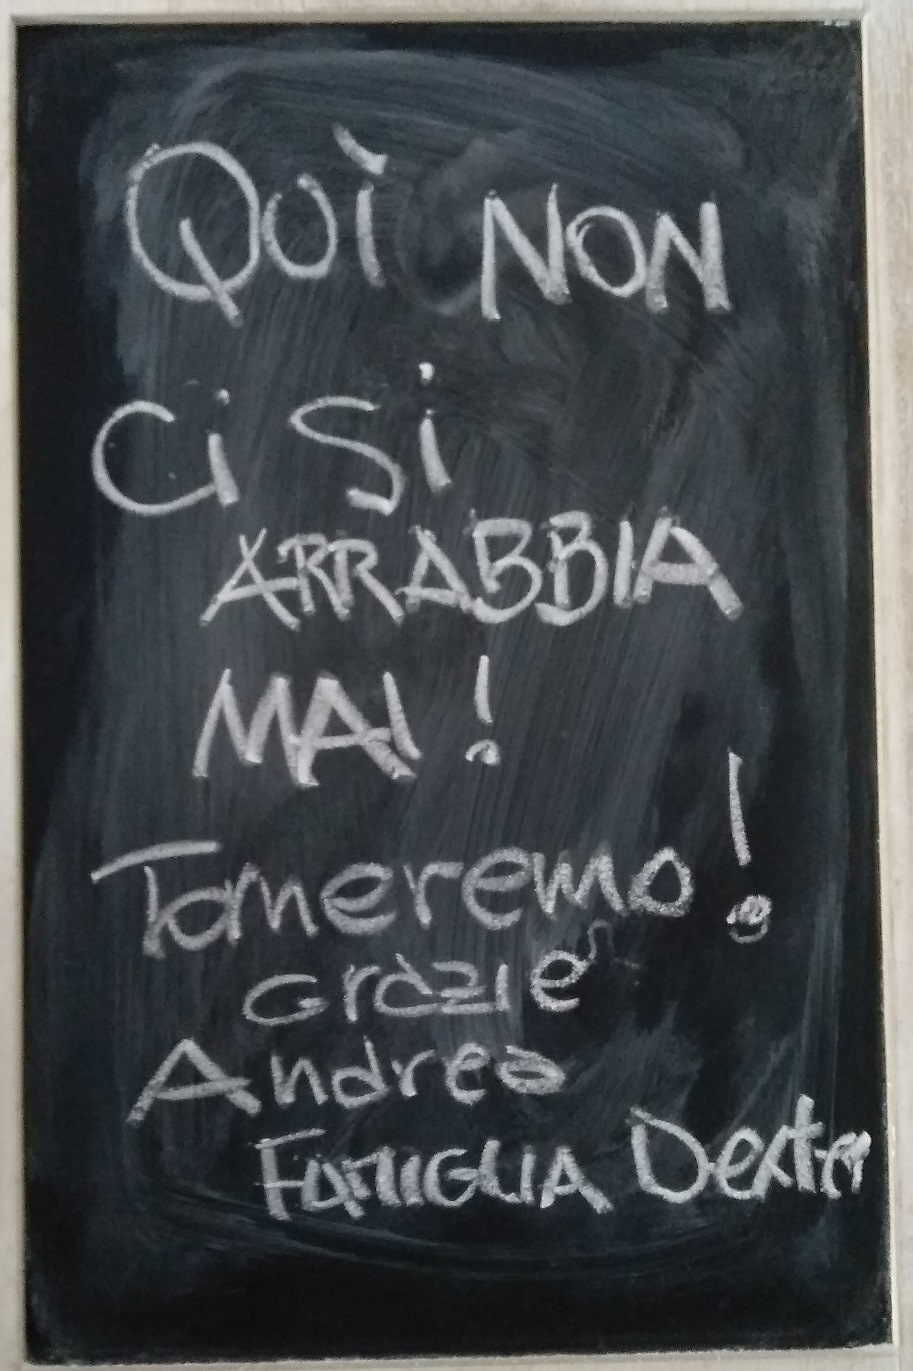 QUì NON
Ci Si
ARRABBIA
MAI!
Torneremo!
Grazie
Andrea
FAMIGLIA Dexter